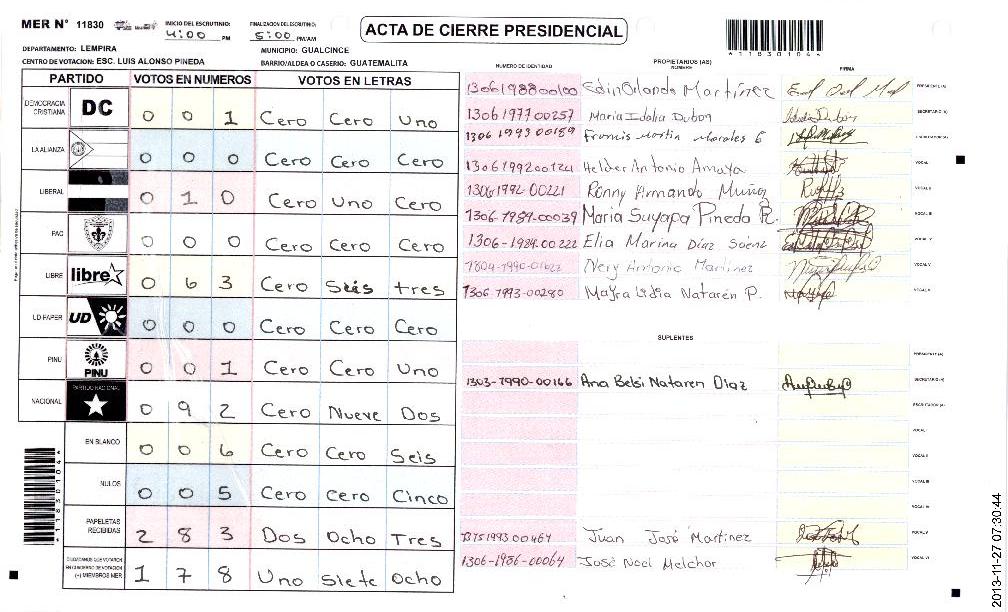 MER N° 11830
INICIO DEL ESCRUTINIO: 4:00 PM
FINALIZACION DEL ESCRUTINIO: 5:00 PM/AM
ACTA DE CIERRE PRESIDENCIAL
*118301044*
DEPARTAMENTO: LEMPIRA
MUNICIPIO: GUALCINCE
CENTRO DE VOTACION: ESC. LUIS ALONSO PINEDA
BARRIO/ALDEA O CASERIO: GUATEMALITA
PARTIDO VOTOS EN NUMEROS VOTOS EN LETRAS
DEMOCRACIA CRISTIANA DC 0 0 1 Cero Cero Uno
LA ALIANZA 0 0 0 Cero Cero Cero
LIBERAL 0 1 0 Cero Uno Cero
PAC 0 0 0 Cero Cero Cero
LIBRE libre 0 6 3 Cero Seis tres
UD FAPER UD 0 0 0 Cero Cero Cero
PINU PINU 0 0 1 Cero Cero Uno
NACIONAL PARTIDO NACIONAL 0 9 2 Cero Nueve Dos
EN BLANCO 0 0 6 Cero Cero Seis
NULOS 0 0 5 Cero Cero Cinco
PAPELETAS RECIBIDAS 2 8 3 Dos Ocho Tres
(+) MIEMBROS MER 1 7 8 Uno Siete Ocho
NUMERO DE IDENTIDAD PROPIETARIOS (AS) NOMBRE FIRMA
1306198800100 Edin Orlando Martínez PRESIDENTE (A)
1306197700257 Maria Idalia Dubon SECRETARIO (A)
1306 1993 00189 Francis Morales G ESCRUTADOR (A)
1306199200124 Helder Antonio Amaya VOCAL I
1306 1992-00221 Ronny Armando Muñoz VOCAL II
1306-1984-00039 Maria Suyapa Pineda VOCAL III
1306-1984-00222 Elia Marina Díaz Saenz VOCAL IV
1804-1990-01022 Nery Antonio Martinez VOCAL V
1306-1993-00280 Mayra Lidia Natarén P. VOCAL VI
SUPLENTES
PRESIDENTE (A)
1303-1990-00166 Ana Belsi Nataren Diaz SECRETARIO (A)
ESCRUTADOR (A)
VOCAL I
VOCAL II
VOCAL III
VOCAL IV
1993 00464 Juan José Martínez VOCAL V
1306-1986-00064 José Noel Melchor VOCAL VI
2013-11-27 07:30:44